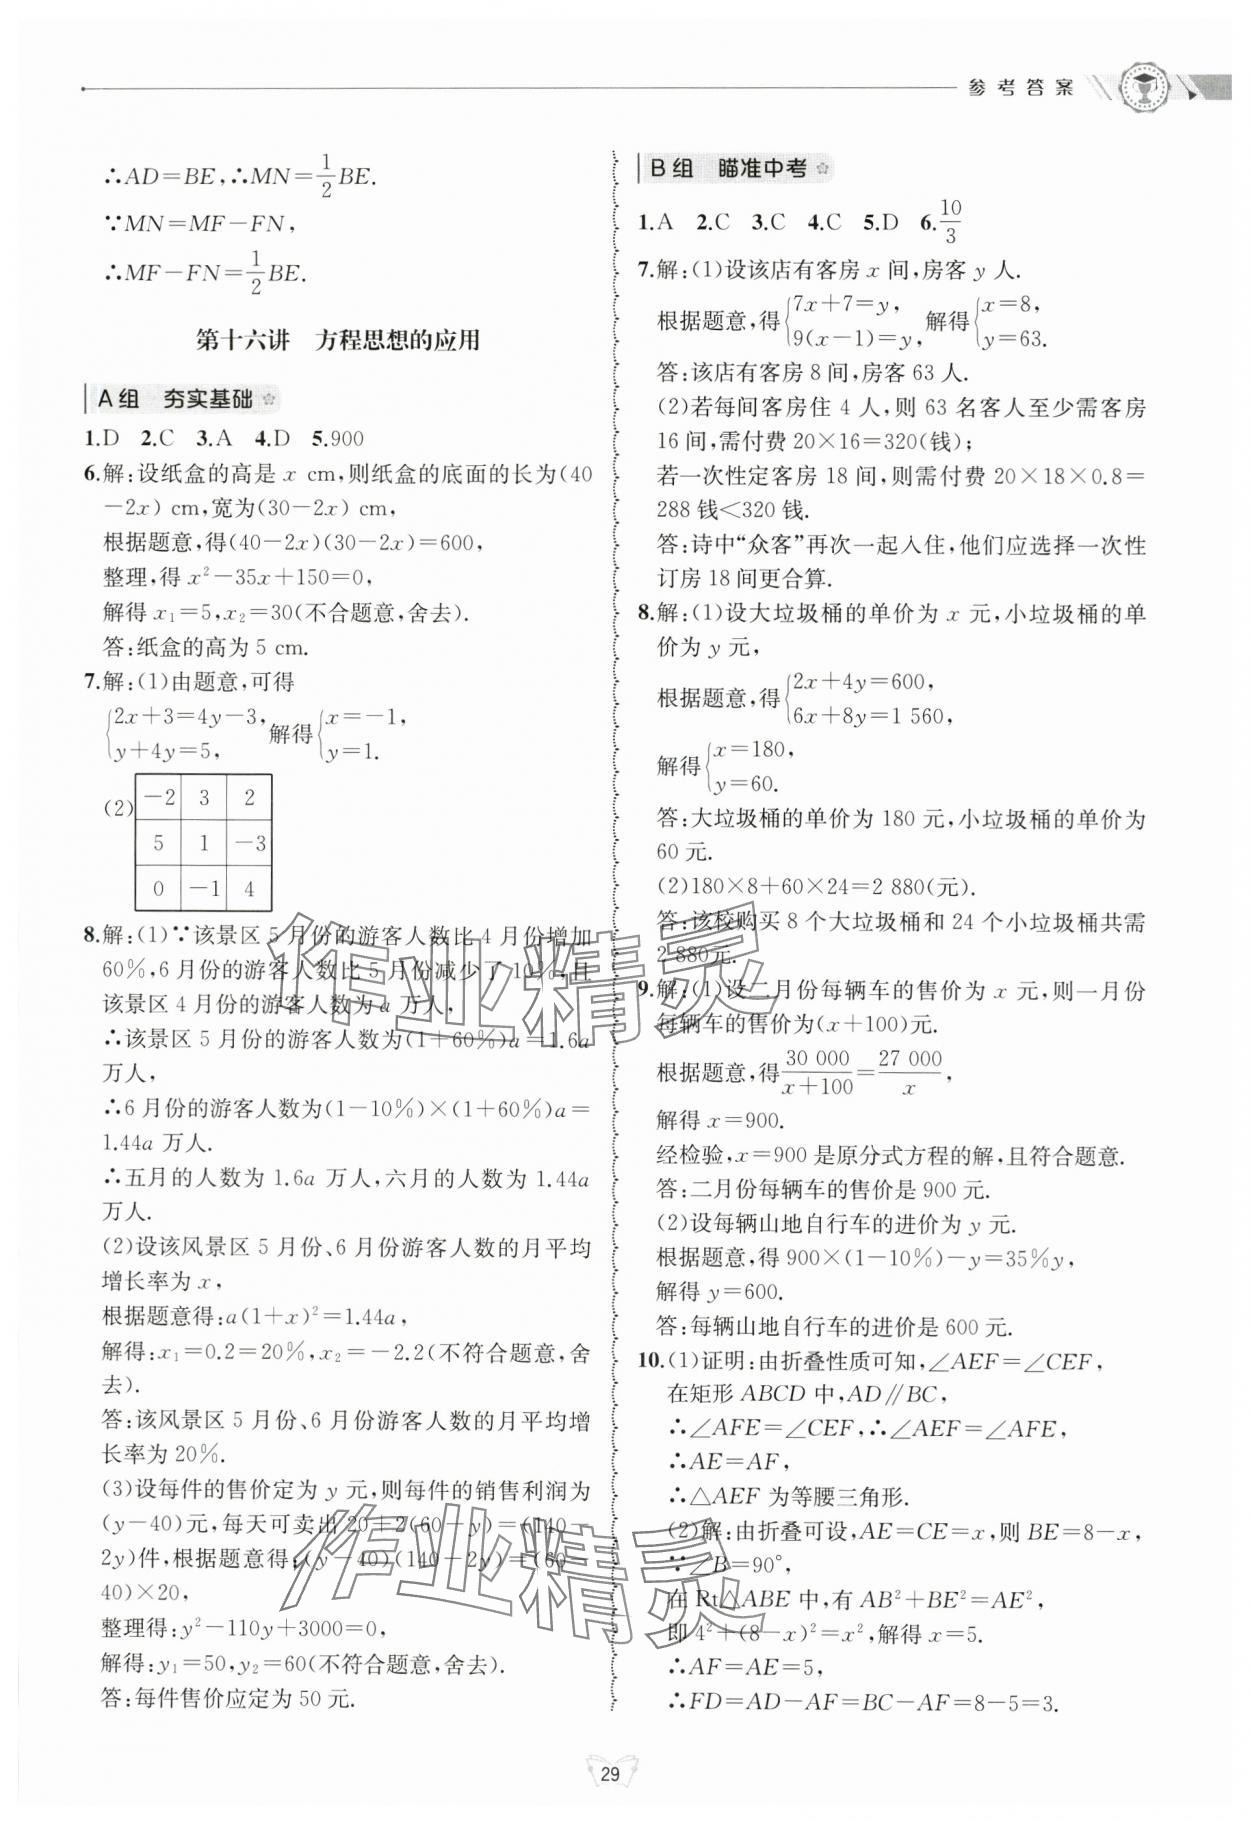 参考答案
∴AD=BE,∴MN=1/2BE.
∵MN=MF-FN,
∴MF-FN=1/2BE.
第十六讲 方程思想的应用
A组 夯实基础
1.D 2.C 3.A 4.D 5.900
6.解:设纸盒的高是 x cm,则纸盒的底面的长为(40
-2x) cm,宽为(30-2x) cm,
根据题意,得(40-2x)(30-2x)=600,
整理,得 x²-35x+150=0,
解得 x₁=5,x₂=30(不合题意,舍去).
答:纸盒的高为 5 cm.
7.解:(1)由题意,可得
{2x+3=4y-3, y+4y=5, 解得{x=-1, y=1.
(2)
-2 3 2
5 1 -3
0 -1 4
8.解:(1)∵该景区 5 月份的游客人数比 4 月份增加
60%,6 月份的游客人数比 5 月份减少了 10%,且
该景区 4 月份的游客人数为 a 万人,
∴该景区 5 月份的游客人数为(1+60%)a=1.6a
万人,
∴6 月份的游客人数为(1-10%)×(1+60%)a=
1.44a 万人.
∴五月的人数为 1.6a 万人,六月的人数为 1.44a
万人.
(2)设该风景区 5 月份、6 月份游客人数的月平均
增长率为 x,
根据题意得:a(1+x)²=1.44a,
解得:x₁=0.2=20%,x₂=-2.2(不符合题意,舍
去).
答:该风景区 5 月份、6 月份游客人数的月平均增
长率为 20%.
(3)设每件的售价定为 y 元,则每件的销售利润为
(y-40)元,每天可卖出 20+2(60-y)=(140-
2y)件,根据题意得:(y-40)(140-2y)=(60-
40)×20,
整理得:y²-110y+3000=0,
解得:y₁=50,y₂=60(不符合题意,舍去).
答:每件售价应定为 50 元.
B组 瞄准中考
1.A 2.C 3.C 4.C 5.D 6.10/3
7.解:(1)设该店有客房 x 间,房客 y 人.
根据题意,得{7x+7=y, 9(x-1)=y, 解得{x=8, y=63.
答:该店有客房 8 间,房客 63 人.
(2)若每间客房住 4 人,则 63 名客人至少需客房
16 间,需付费 20×16=320(钱);
若一次性定客房 18 间,则需付费 20×18×0.8=
288 钱<320 钱.
答:诗中“众客”再次一起入住,他们应选择一次性
订房 18 间更合算.
8.解:(1)设大垃圾桶的单价为 x 元,小垃圾桶的单
价为 y 元,
根据题意,得{2x+4y=600, 6x+8y=1 560,
解得{x=180, y=60.
答:大垃圾桶的单价为 180 元,小垃圾桶的单价为
60 元.
(2)180×8+60×24=2 880(元).
答:该校购买 8 个大垃圾桶和 24 个小垃圾桶共需
2 880元.
9.解:(1)设二月份每辆车的售价为 x 元,则一月份
每辆车的售价为(x+100)元.
根据题意,得30 000/(x+100)=27 000/x,
解得 x=900.
经检验,x=900 是原分式方程的解,且符合题意.
答:二月份每辆车的售价是 900 元.
(2)设每辆山地自行车的进价为 y 元.
根据题意,得 900×(1-10%)-y=35%y,
解得 y=600.
答:每辆山地自行车的进价是 600 元.
10.(1)证明:由折叠性质可知,∠AEF=∠CEF,
在矩形 ABCD 中,AD∥BC,
∴∠AFE=∠CEF,∴∠AEF=∠AFE,
∴AE=AF,
∴△AEF 为等腰三角形.
(2)解:由折叠可设,AE=CE=x,则 BE=8-x,
∵∠B=90°,
在 Rt△ABE 中,有 AB²+BE²=AE²,
即 4²+(8-x)²=x²,解得 x=5.
∴AF=AE=5,
∴FD=AD-AF=BC-AF=8-5=3.
29
作业精灵
作业精灵